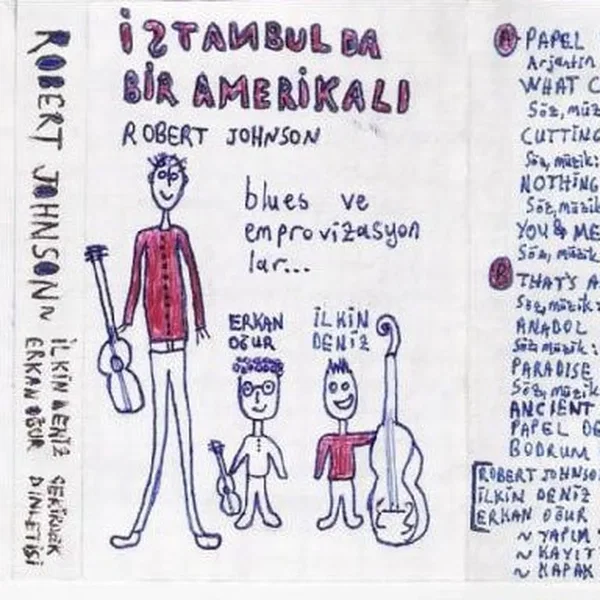 ROBERT JOHNSON ~ İLKİN DENİZ
ERKAN OĞUR DİNLETİSİ
İSTANBUL DA
BİR AMERİKALI
ROBERT JOHNSON
blues ve
emprovizasyon
lar...
ERKAN
OĞUR
İLKİN
DENİZ
A PAPEL
Arjantin
WHAT C
Söz, müz
CUTTING
Söz, müzik:
NOTHING
Söz, müzik
YOU & ME
Söz, müzik
B THAT'S A
Söz, müzik
ANADOL
Söz müzik:
PARADISE
Söz, müzik
ANCIENT
PAPEL DE
BODRUM
ROBERT JOHNSO
İLKİN DENİZ
ERKAN OĞUR
~ YAPIM
~ KAYIT
~ KAPAK